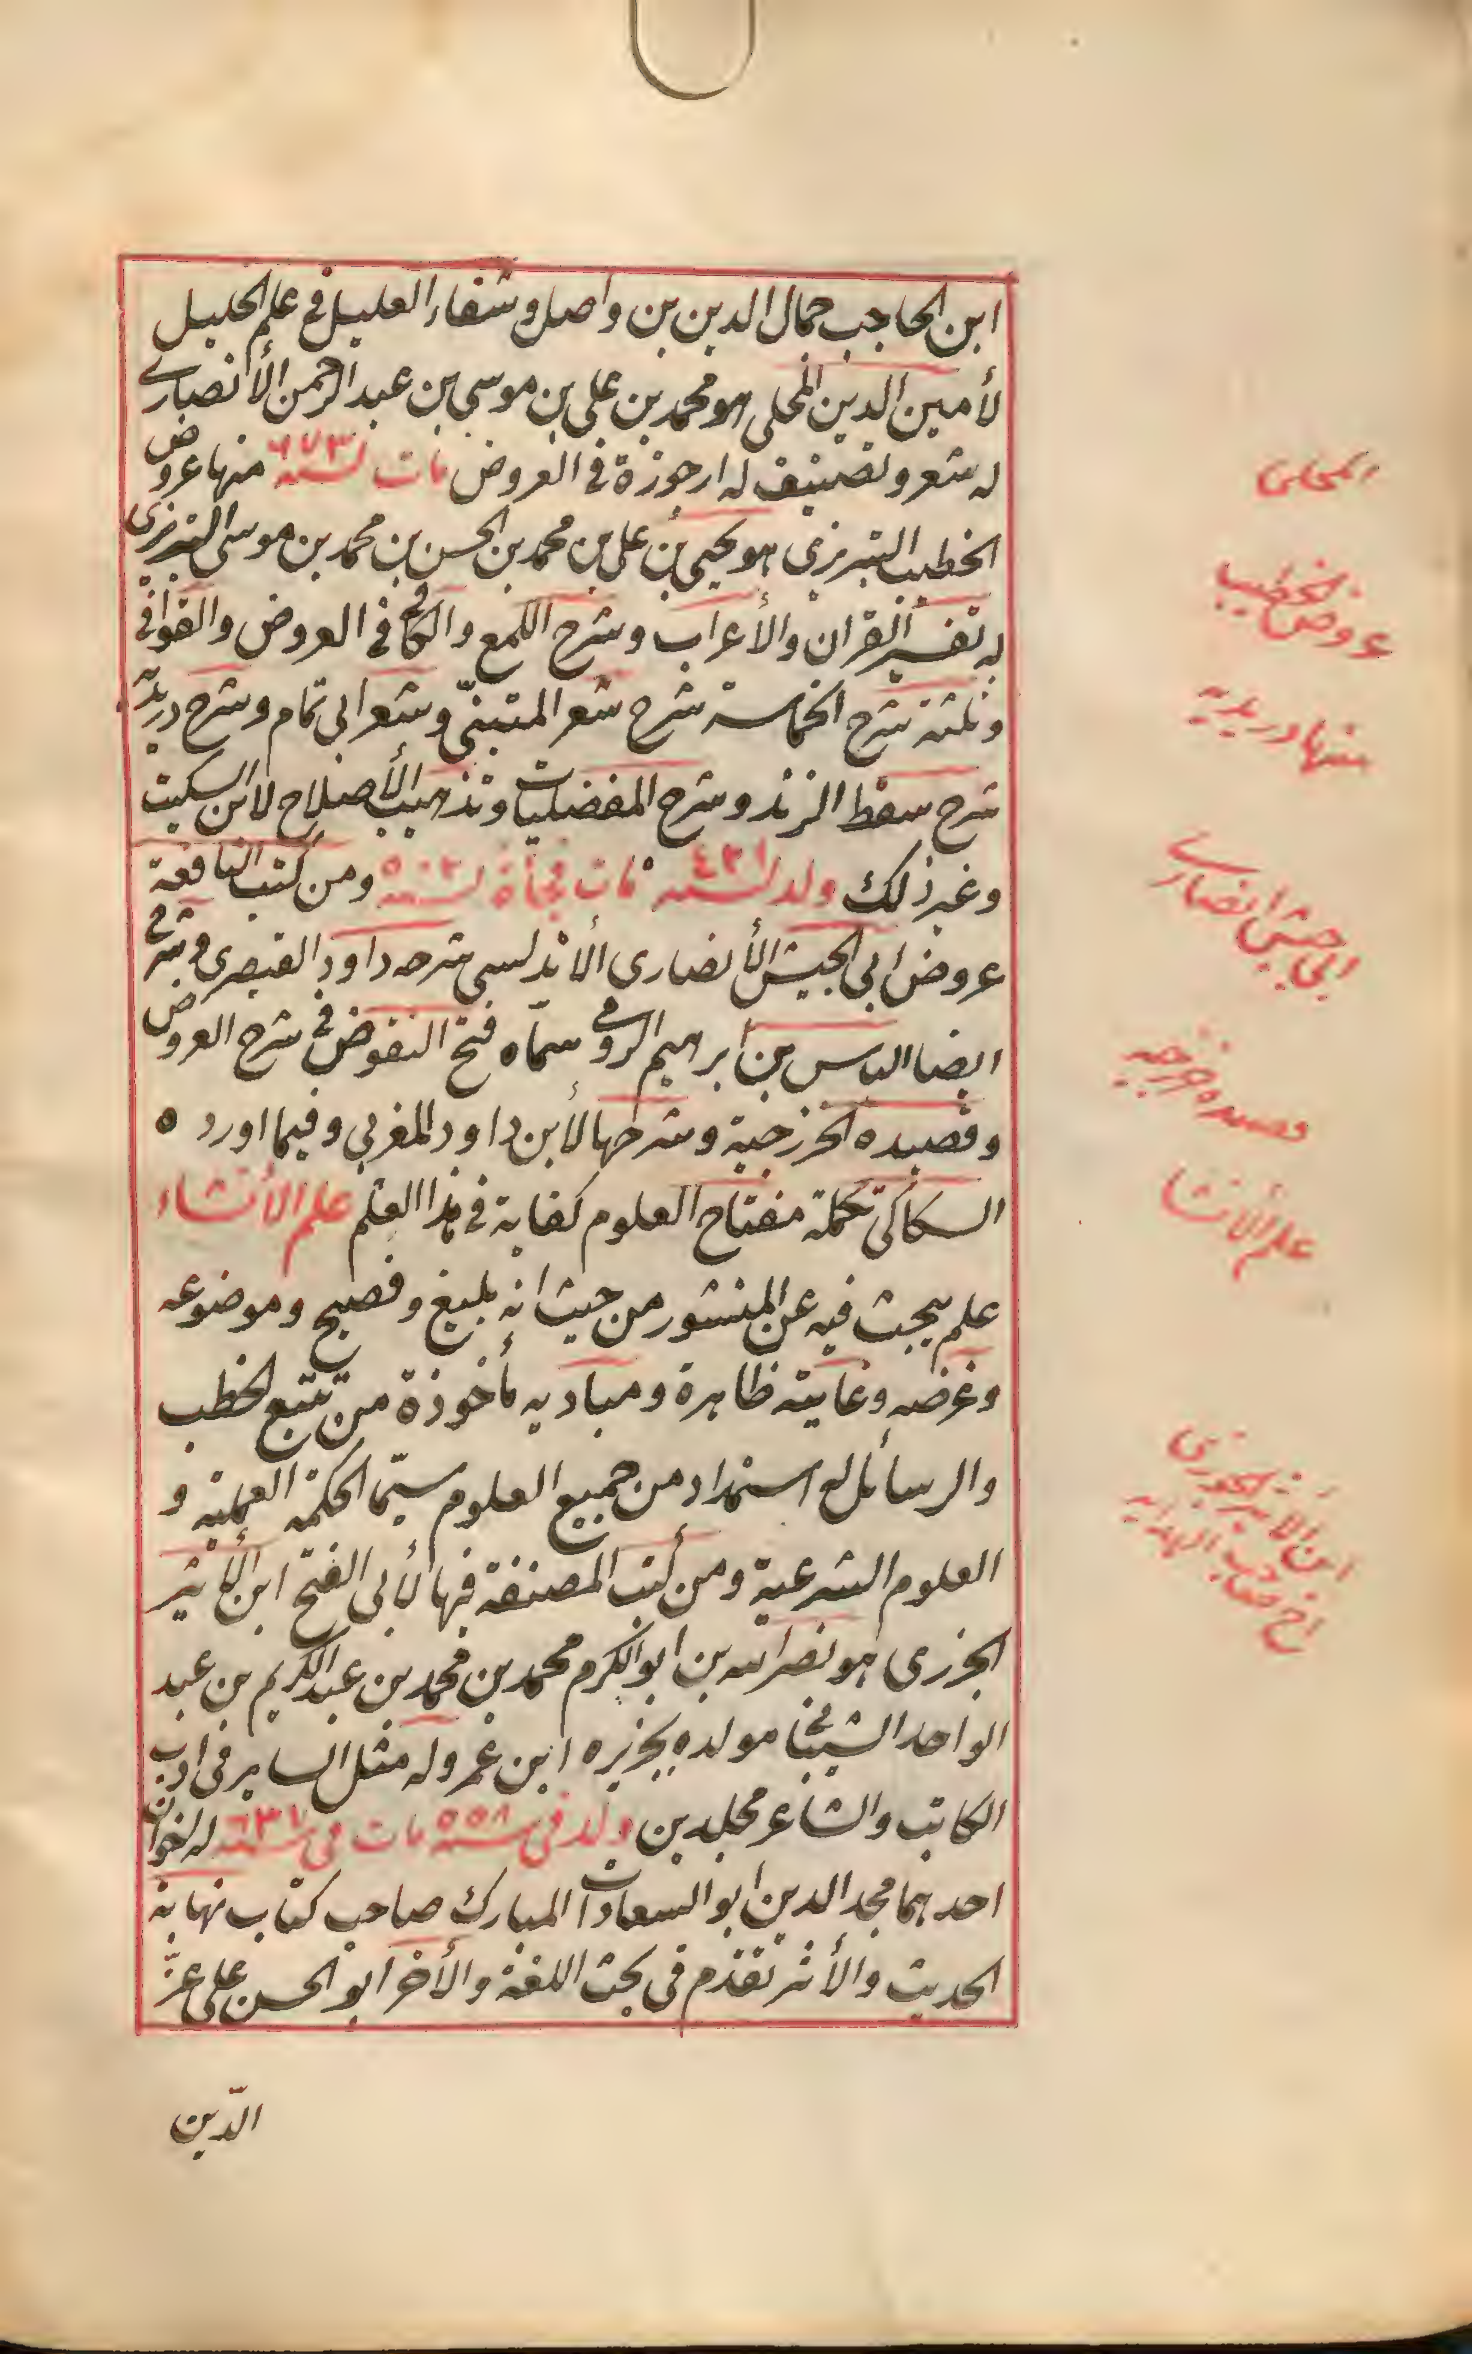 ابن الحاجب جمال الدين بن واصل وشفاء العليل في علم الخليل
لأمين الدين المحلي هو محمد بن علي بن موسى بن عبد الرحمن الأنصاري
له شعر وتصنيف له ارجوزة في العروض مات لسنة ٦٧٣ منها عروض
الخطيب التبريزي هو يحيى بن علي بن محمد بن الحسن بن محمد بن موسى التبريزي
له تفسير القران والأعراب وشرح اللمع والكافي في العروض والقوافي
وثلثة شرح الحماسة شرح شعر المتنبّي وشعر ابي تمام وشرح دريدية
شرح سقط الزند وشرح المفضليات وتذهيب الأصلاح لابن السكيت
وغير ذلك ولد لسنه ٤٢١ مات فجأة لسنة ٥٠٢ ومن كتب النافعة
عروض ابي الجيش الأنصاري الأندلسي شرحه داود القيصرى وشرح
ايضا الياس بن ابرهيم الرومي سمّاه فتح النقوض في شرح العروض
وقصيده الخزرجية وشرحها لأبن داود المغربي وفيما اورد ه
السكاكي تكملة مفتاح العلوم كفاية في هذا العلم علم الأنشاء
علم يبحث فيه عن المنثور من حيث انه بليغ وفصيح وموضوعه
وغرضه وغايته ظاهرة ومباديه مأخوذة من تتبع الخطب
والرسائل له استمداد من جميع العلوم سيّما الحكمة العملية و
العلوم الشرعية ومن كتب المصنفة فيها لأبي الفتح ابن الأثير
الجزري هو نصر الله بن ابو الكرم محمد بن محمد بن عبد الكريم بن عبد
الواحد الشيباني مولده بجزيره ابن عمر وله مثل الساير في ادب
الكاتب والشاعر مجلدين ولد في سنة ٥٥٨ مات في سنة ٦٣٧ له اخوان
احدهما مجد الدين ابو السعادات المبارك صاحب كتاب نهاية
الحديث والأثر تقدم في بحث اللغة والأخر ابو الحسن علي عزّ
الدّين
المحلى
عروض الخطيب
منها دريديه
ابي جيش انصاري
قصيده خزرجيه
علم الأنشا
ابن الأثير الجزري
اخ صاحب النهايه